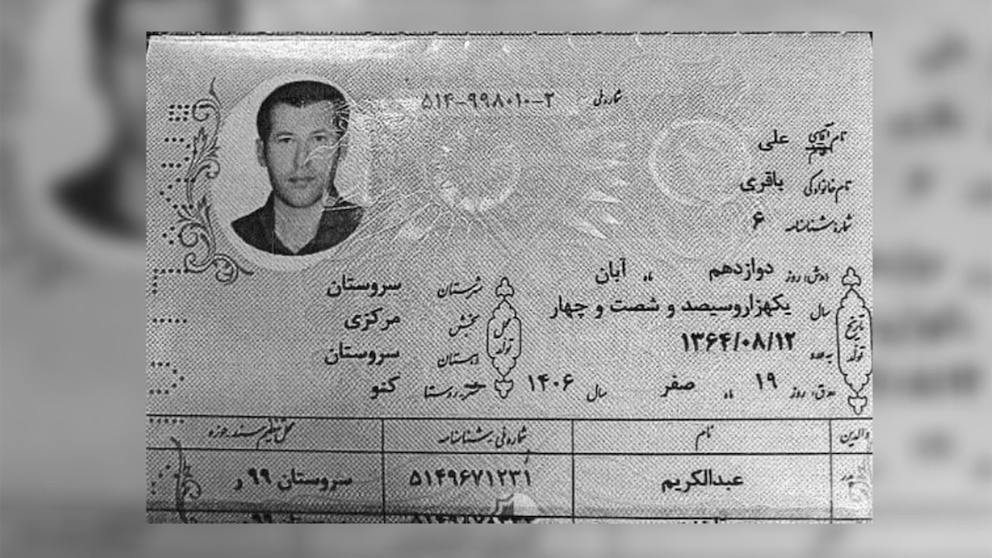 شماره ملی ۲-۵۱۴-۹۹۸۰۱۰
نام آقای علی
نام خانوادگی باقری
شماره شناسنامه ۶
تاریخ تولد
روز دوازدهم ماه آبان
سال یکهزاروسیصد و شصت و چهار
۱۳۶۴/۰۸/۱۲
روز ۱۹ ماه صفر سال ۱۴۰۶
محل تولد
شهرستان سروستان
بخش مرکزی
دهستان سروستان
روستا کنو
والدین نام شماره ملی / شناسنامه محل تنظیم سند حوزه
عبدالکریم ۵۱۴۹۶۷۱۲۳۱ سروستان ۹۹ ر